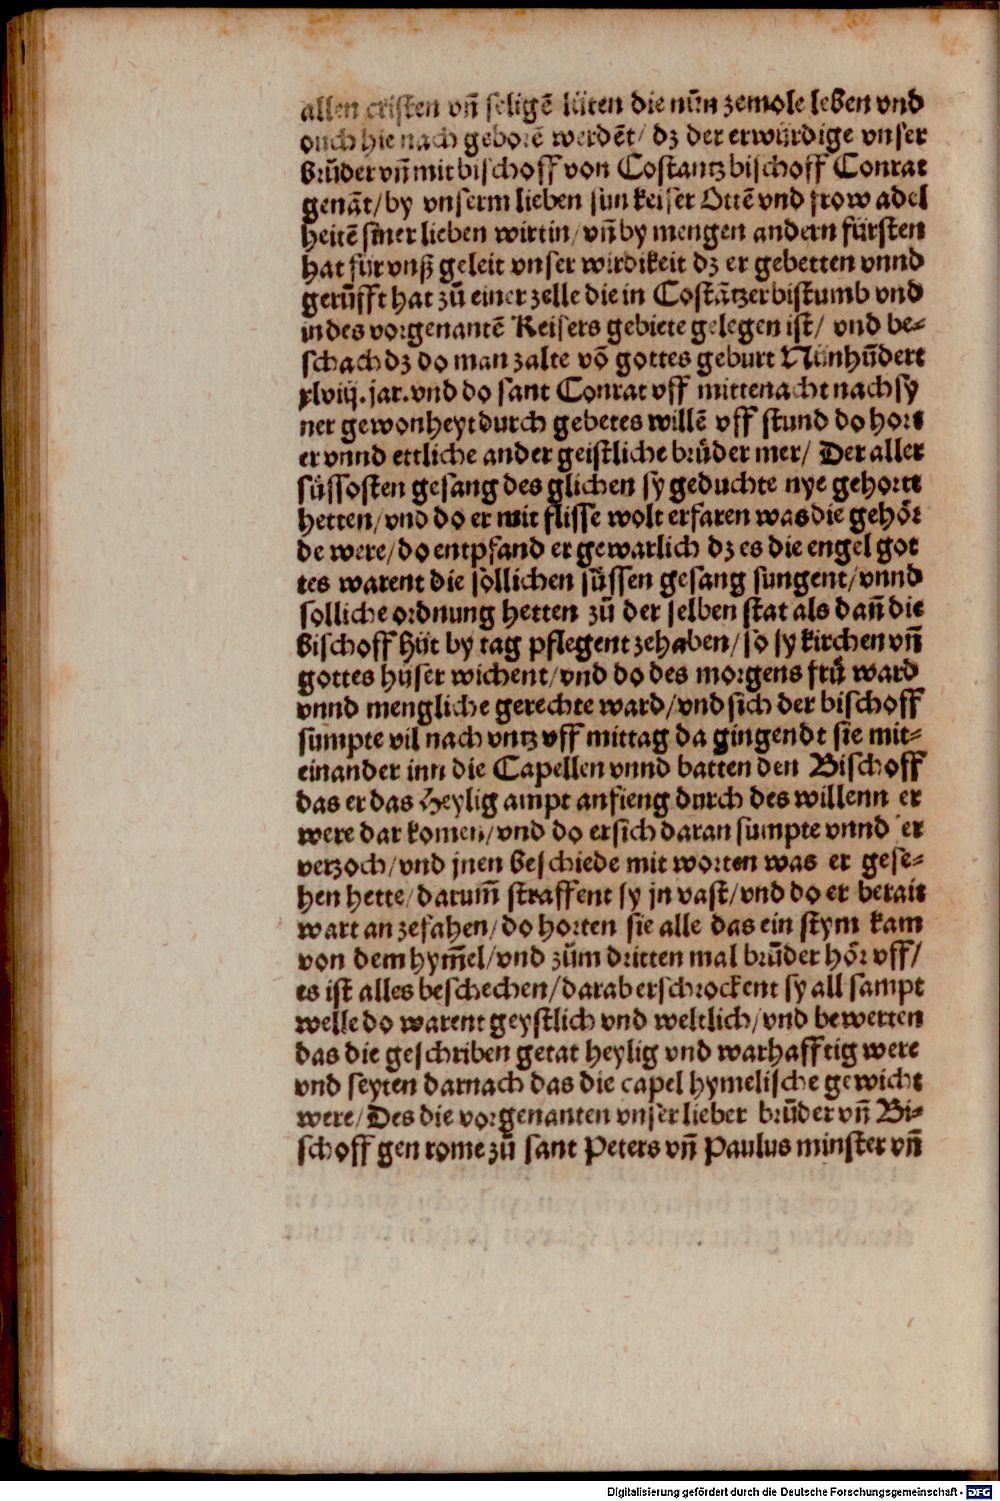 allen cristen vn̄ seligē lüten die nūn zemole leben vnd
ouch hie nach geborē werdēt/ dz der erwürdige vnser
brůder vn̄ mit bischoff von Costantz bischoff Conrat
genāt/by vnserm lieben sun keiser Ottē vnd frow adel
heitē siner lieben wirtin/vn̄ by mengen andern fürsten
hat für vnß geleit vnser wirdikeit dz er gebetten vnnd
gerůfft hat zů einer zelle die in Costātzer bistumb vnd
in des vorgenantē Keisers gebiete gelegen ist/ vnd be⸗
schach dz do man zalte vō gottes geburt Nünhůndert
xlviij.jar.vnd do sant Conrat vff mittenacht nach sy
ner gewonheyt durch gebetes willē vff stund do hort
er vnnd ettliche ander geistliche brůder mer/ Der aller
süssosten gesang des glichen sy geduchte nye gehortt
hetten/vnd do er mit flisse wolt erfaren was die gehör
de were/do entpfand er gewarlich dz es die engel got
tes warent die söllichen süssen gesang sungent/vnnd
solliche ordnung hetten zů der selben stat als dan̄ die
bischoff hüt by tag pflegent zehaben/so sy kirchen vn̄
gottes hüser wichent/vnd do des morgens frů ward
vnnd mengliche gerechte ward/vnd sich der bischoff
sumpte vil nach vntz vff mittag da gingendt sie mit⸗
einander inn die Capellen vnnd batten den Bischoff
das er das Heylig ampt anfieng durch des willenn er
were dar komen/vnd do er sich daran sumpte vnnd er
verzoch/vnd jnen beschiede mit worten was er gese⸗
hen hette/darum̄ straffent sy jn vast/vnd do er berait
wart an zefahen/do horten sie alle das ein stym kam
von dem hym̄el/vnd zům dritten mal brůder hör vff/
es ist alles beschechen/darab erschrockent sy all sampt
welle do warent geystlich vnd weltlich/vnd bewerten
das die geschriben getat heylig vnd warhafftig were
vnd seyten darnach das die capel hymelische gewicht
were/Des die vorgenanten vnser lieber brůder vn̄ Bi⸗
schoff gen rome zů sant Peters vn̄ Paulus minster vn̄
Digitalisierung gefördert durch die Deutsche Forschungsgemeinschaft - DFG